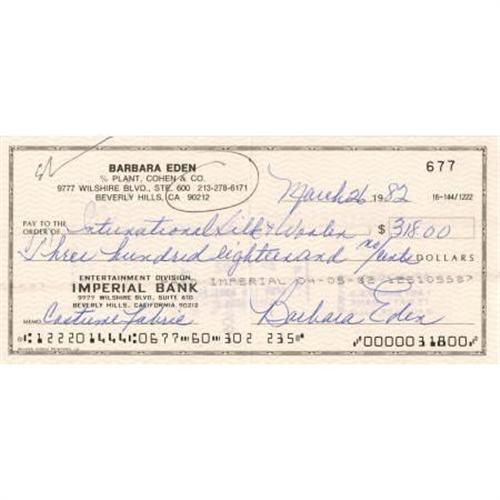 BARBARA EDEN
% PLANT, COHEN & CO.
9777 WILSHIRE BLVD., STE. 600 213-278-6171
BEVERLY HILLS, CA 90212
677
March 26 1982
16-144/1222
PAY TO THE ORDER OF International Silk & Woolen $ 318.00
Three hundred eighteen and no/cents DOLLARS
ENTERTAINMENT DIVISION
IMPERIAL BANK
9777 WILSHIRE BLVD., SUITE 610
BEVERLY HILLS, CALIFORNIA 90212
IMPERIAL 04-05-82
MEMO Costume Fabric Barbara Eden
⑆122201444⑆0677⑈60⑉302 235⑈ ⑈0000031800⑈